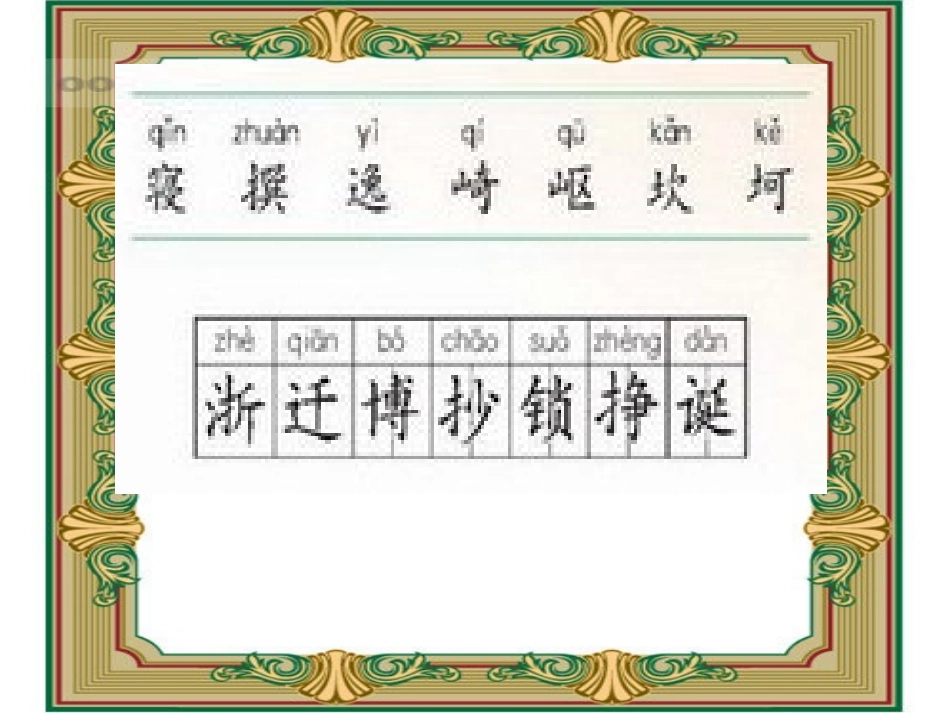 qǐn zhuàn yì qí qū kǎn kě
寝 撰 逸 崎 岖 坎 坷
zhè qiān bó chāo suǒ zhèng dàn
浙 迁 博 抄 锁 挣 诞